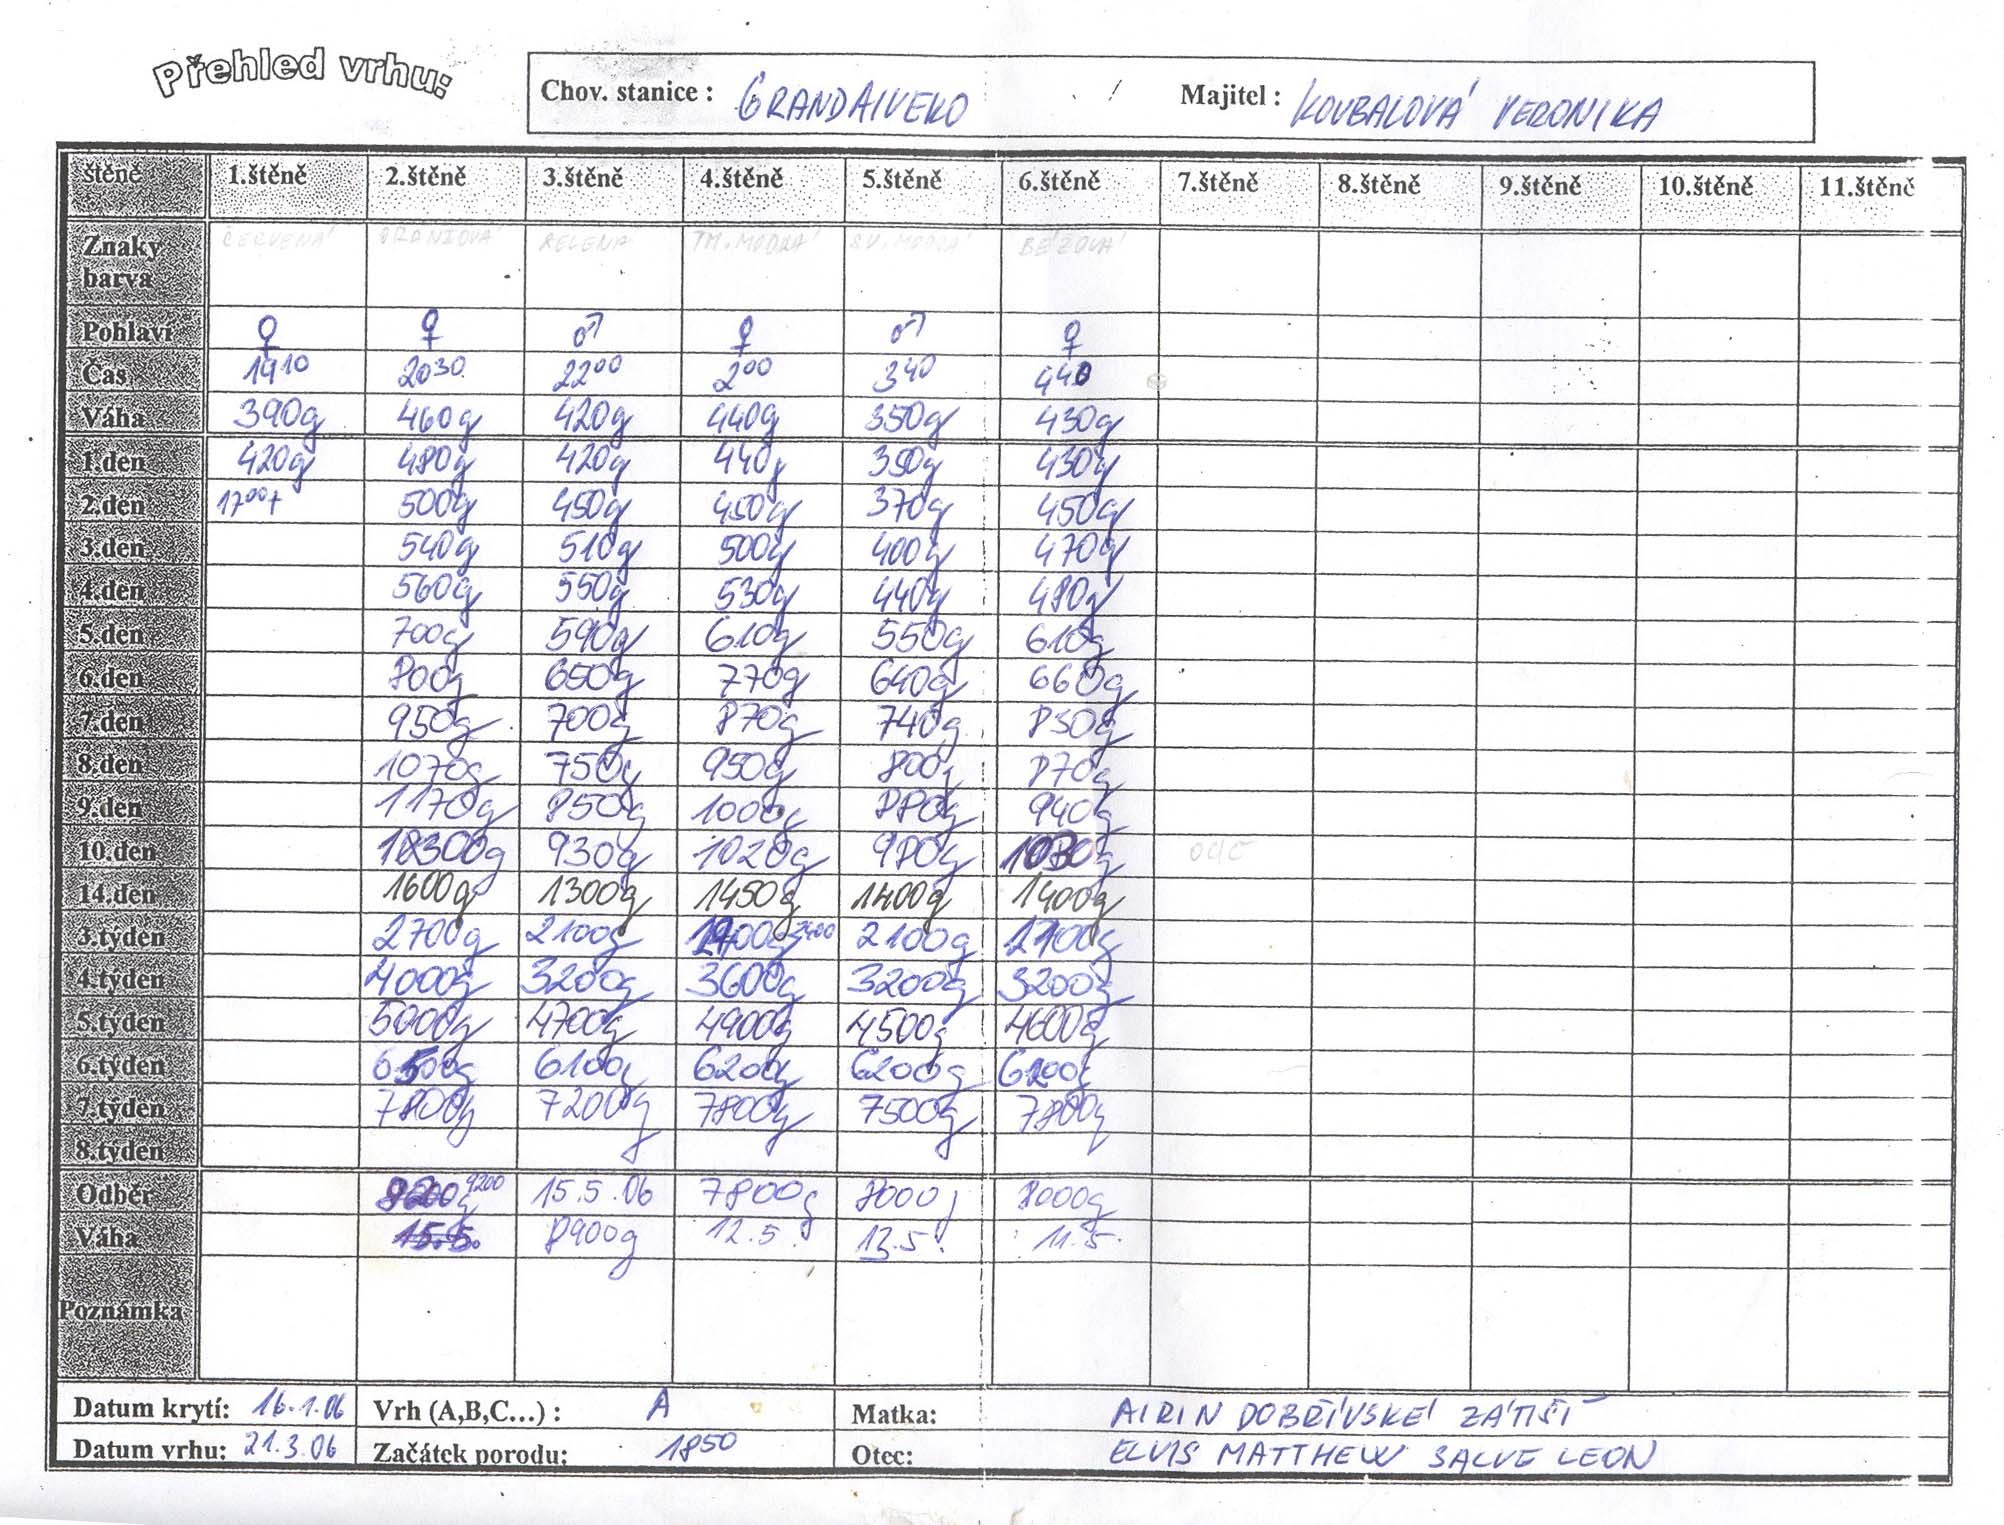 Přehled vrhu:
Chov. stanice : GRANDAIVEKO Majitel : KOUBALOVÁ VERONIKA
štěně 1.štěně 2.štěně 3.štěně 4.štěně 5.štěně 6.štěně 7.štěně 8.štěně 9.štěně 10.štěně 11.štěně
Znaky barva ČERVENÁ ORANŽOVÁ ZELENÁ TM. MODRÁ SV. MODRÁ BÉŽOVÁ
Pohlaví ♀ ♀ ♂ ♀ ♂ ♀
Čas 1910 2030 2200 200 340 440
Váha 390g 460g 420g 440g 350g 430g
1.den 420g 480g 420g 440g 350g 430g
2.den 1700+ 500g 450g 450g 370g 450g
3.den 540g 510g 500g 400g 470g
4.den 560g 550g 530g 440g 480g
5.den 700g 590g 610g 550g 610g
6.den 800g 650g 770g 640g 660g
7.den 950g 700g 870g 740g 850g
8.den 1070g 750g 950g 800g 870g
9.den 1170g 850g 1000g 880g 940g
10.den 930g 1020g 980g 1030g
14.den 1600g 1300g 1450g 1400g 1400g
3.týden 2700g 2100g 2400 2100g
4.týden 4000g 3200g 3600g 3200g 3200g
5.týden 5000g 4700g 4900g 4500g 4600g
6.týden 6500g 6100g 6200g 6200g 6200g
7.týden 7800g 7200g 7800g 7500g 7800g
8.týden
Odběr 9200 15.5.06 7800g 8000g 8000g
Váha 15.5. 8900g 12.5. 13.5. 11.5.
Poznámka
Datum krytí: 16.1.06 Vrh (A,B,C...) : A Matka: AIRIN DOBŘÍVSKÉ ZÁTIŠÍ
Datum vrhu: 21.3.06 Začátek porodu: 1850 Otec: ELVIS MATTHEW SALVE LEON